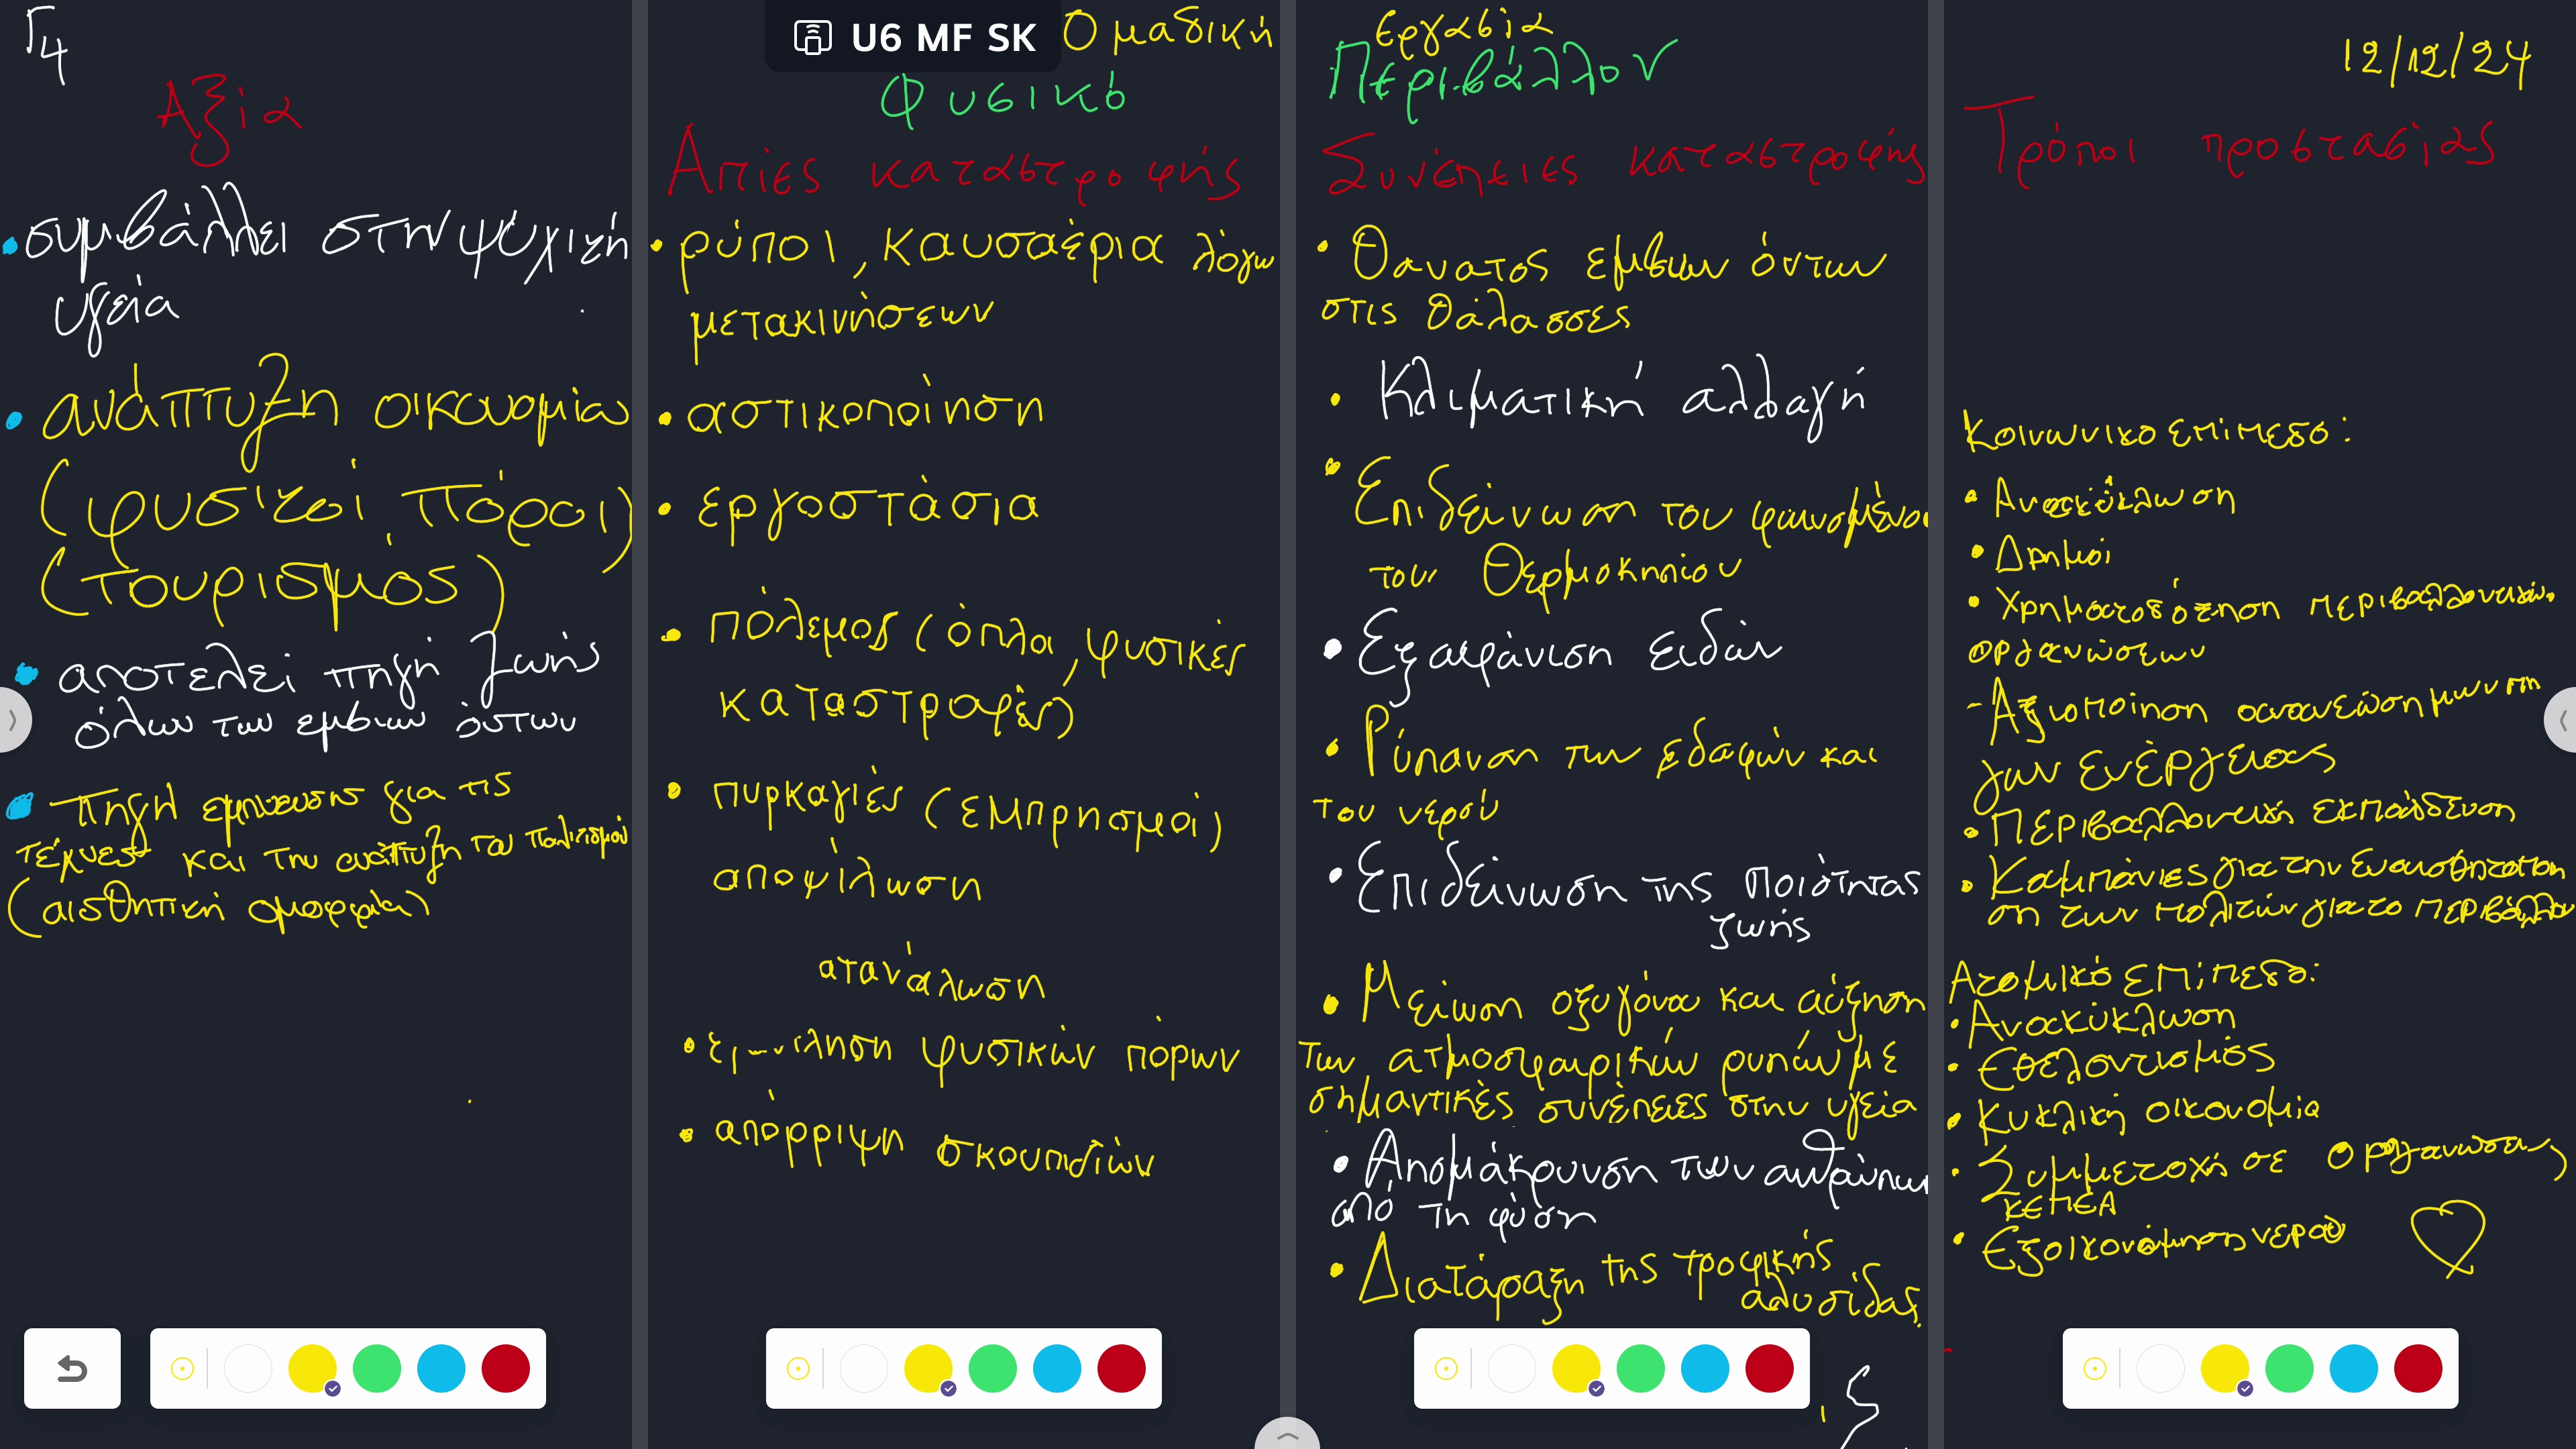 Γ4
U6 MF SK
Ομαδική εργασία
12/12/24
Φυσικό Περιβάλλον
Αξία
• συμβάλλει στην ψυχική
υγεία
• ανάπτυξη οικονομίας
(φυσικοί πόροι)
(τουρισμός)
• αποτελεί πηγή ζωής
όλων των εμβιων όντων
• πηγή εμπνευσης για τις
τέχνες και την ανάπτυξη του πολιτισμού
(αισθητική ομορφιά)
Αιτίες καταστροφής
• ρύποι, καυσαέρια λόγω
μετακινήσεων
• αστικοποίηση
• εργοστάσια
• πόλεμος (όπλα, φυσικές
καταστροφές)
• πυρκαγιές (εμπρησμοί)
αποψίλωση
ατανάλωση
φυσικών πόρων
• απόρριψη σκουπιδιών
Συνέπειες καταστροφής
• Θανατος εμβιων όντων
στις θάλασσες
• Κλιματική αλλαγή
• Επιδείνωση του φαινομένου
του Θερμοκηπίου
• Εξαφάνιση ειδών
• Ρύπανση των εδαφών και
του νερού
• Επιδείνωση της ποιότητας
ζωής
• Μείωση οξυγόνου και αύξηση
των ατμοσφαιρικών ρυπών με
σημαντικές συνέπειες στην υγεία
• Απομάκρυνση των ανθρώπων
από τη φύση
• Διατάραξη της τροφικής
αλυσίδας
Τρόποι προστασίας
Κοινωνικο επίπεδο:
• Ανακύκλωση
• Δρημοί
• Χρηματοδότηση περιβαλλοντικών
οργανώσεων
- Αξιοποίηση ανανεώσημων πη
γων ενέργειας
• Περιβαλλοντική εκπαίδευση
• Καμπάνιες για την ευαισθητοποίη
ση των πολιτών για το περιβάλλον
Ατομικό επίπεδο:
• Ανακύκλωση
• Εθελοντισμός
• Κυκλική οικονομία
• Συμμετοχή σε οργανώσεις
ΚΕΠΕΑ
• Εξοικονόμηση νερού